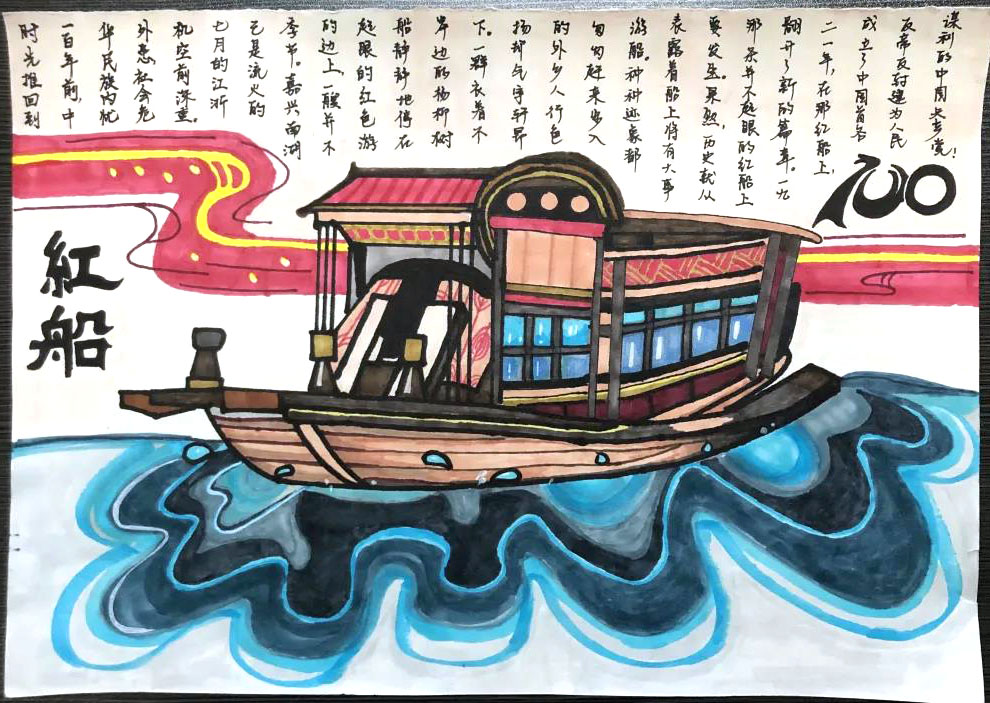 时光推回到
一百年前,中
华民族内忧
外患,社会危
机空前深重。
七月的江浙
已是流火的
季节。嘉兴南湖
的边上,一艘并不
起眼的红色游
船静静地停在
岸边的杨柳树
下。一群衣着不
扬却气宇轩昂
的外乡人行色
匆匆赶来步入
游船。种种迹象都
表露着船上将有大事
要发生。果然,历史就从
那条并不起眼的红船上
翻开了新的篇章。一九
二一年,在那红船上,
成立了中国首
反帝反封建为人民
谋利的中国共产党!
100
紅船